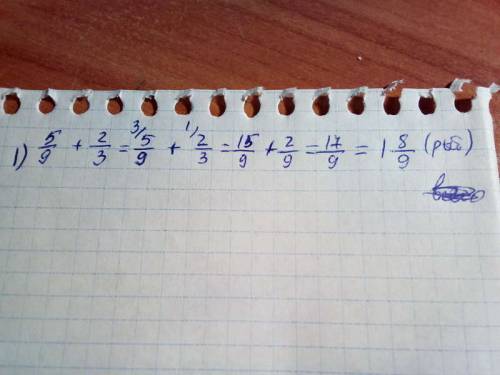 1) 5/9 + 2/3 = 3/ 5/9 + 1/ 2/3 = 15/9 + 2/9 = 17/9 = 1 8/9